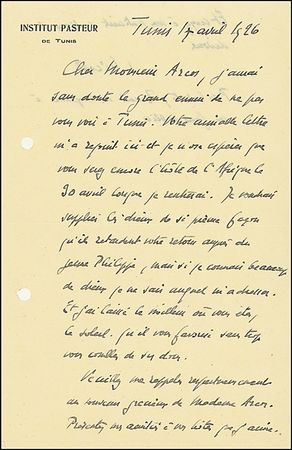 INSTITUT PASTEUR
DE TUNIS
Tunis 17 avril 1926
Cher Monsieur Arcos, j'aurai
sans doute le grand ennui de ne pas
vous voir à Tunis. Votre aimable lettre
m'a rejoint ici et je n'ose espérer que
vous serez encore l'hôte de l'Afrique le
30 avril lorsque je rentrerai. Je voudrais
supplier les dieux de si pieuse façon
qu'ils retardent votre retour auprès du
jeune Philippe, mais si je connais beaucoup
de dieux je ne sais auquel m'adresser.
Et j'ai laissé le meilleur où vous êtes,
le soleil. Qu'il vous favorise sans trop
vous combler de ses dons.
Veuillez me rappeler respectueusement
au souvenir gracieux de Madame Arcos.
Présentez mes amitiés à vos hôtes que j'aime.